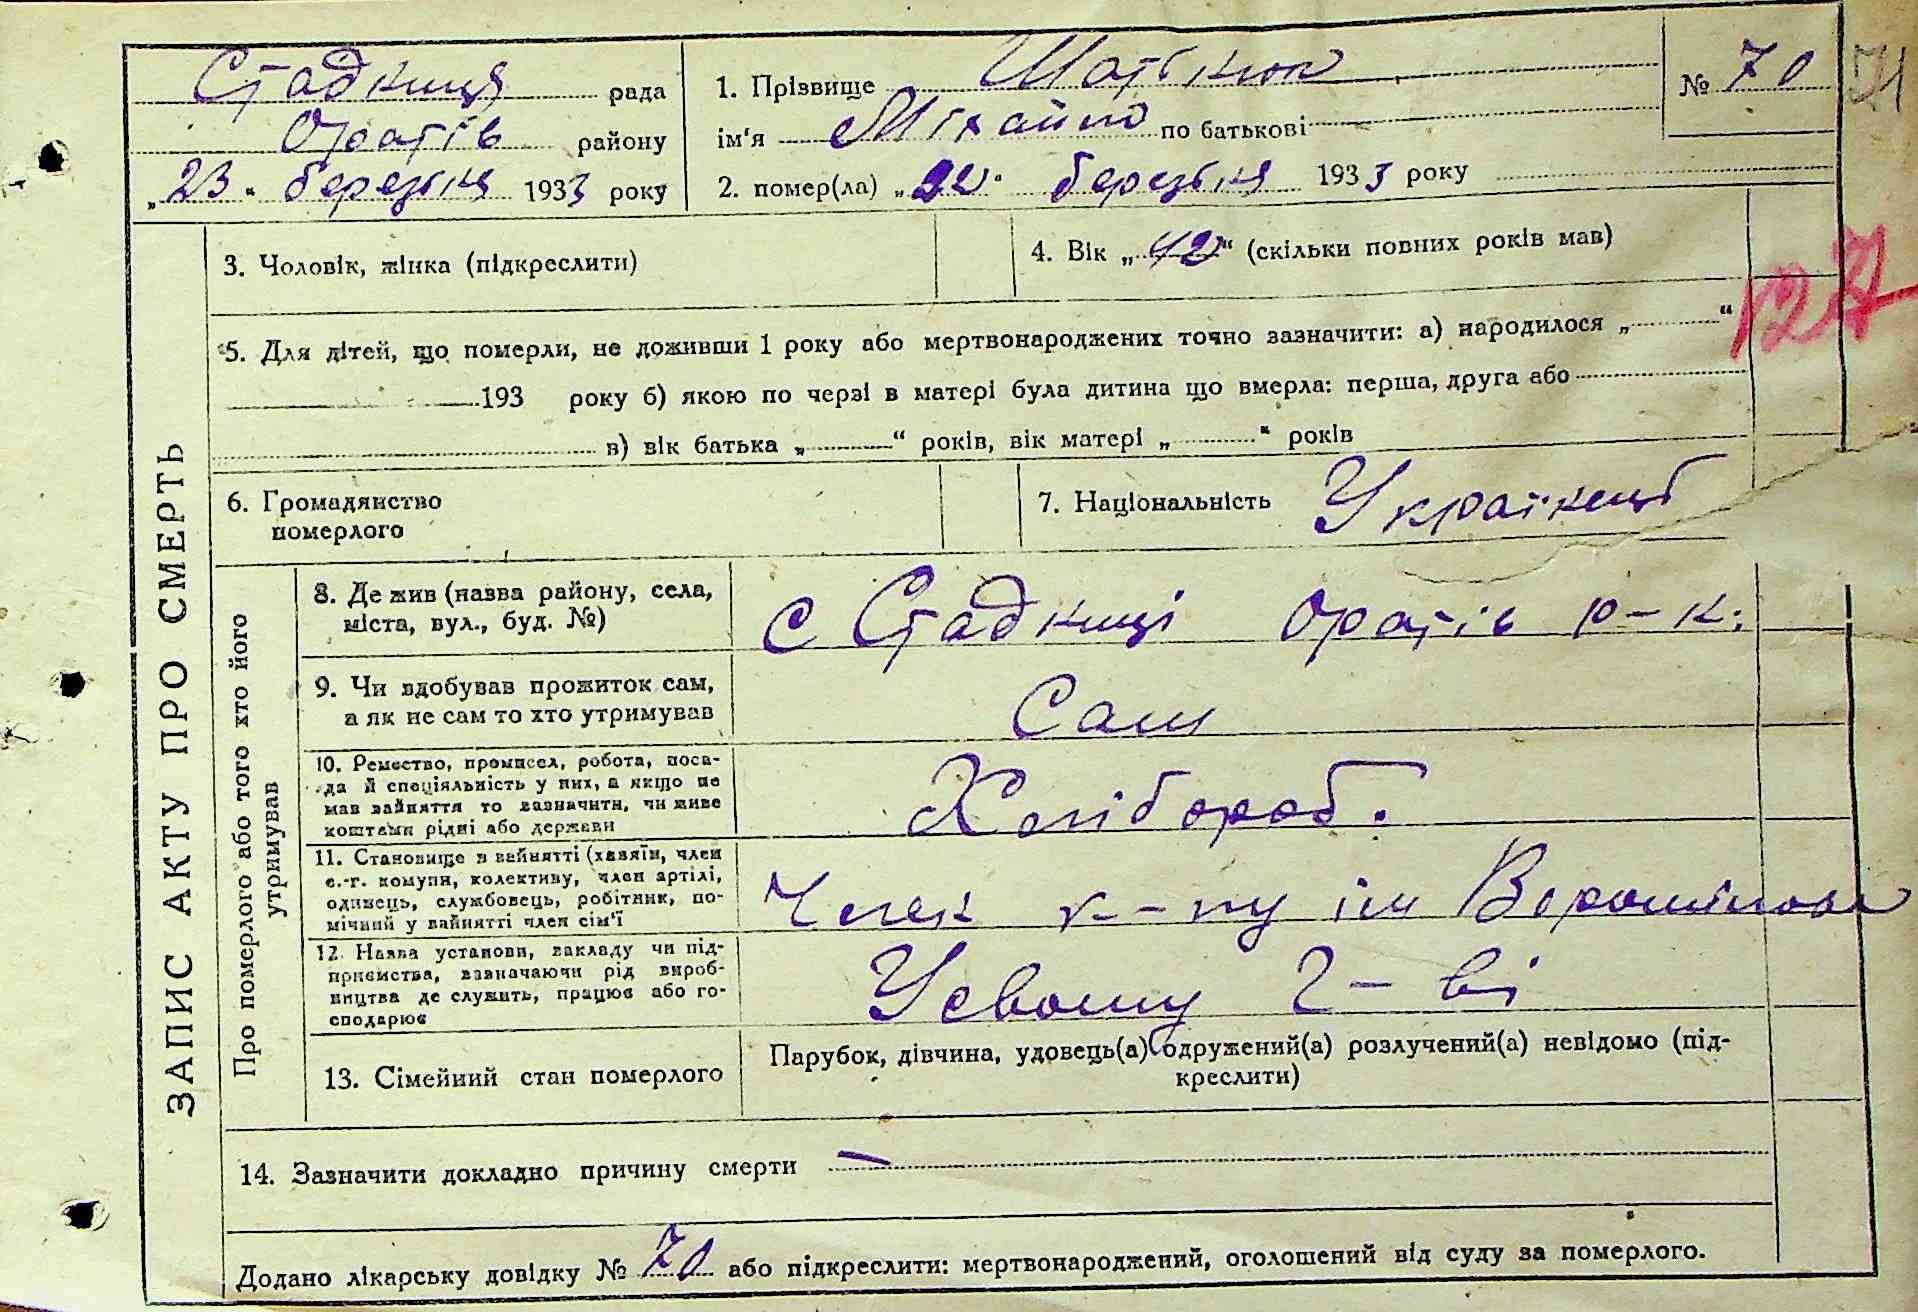 Стадниця рада
Оратів району
„23“ березня 1933 року
1. Прізвище
ім'я Міхайло по батькові
2. помер(ла) „22“ березня 1933 року
№ 70
71
127
ЗАПИС АКТУ ПРО СМЕРТЬ
3. Чоловік, жінка (підкреслити)
4. Вік „42“ (скільки повних років мав)
5. Для дітей, що померли, не доживши 1 року або мертвонароджених точно зазначити: а) народилося „ “
193 року б) якою по черзі в матері була дитина що вмерла: перша, друга або
в) вік батька „ “ років, вік матері „ “ років
6. Громадянство
померлого
7. Національність Українець
Про померлого або того хто його
утримував
8. Де жив (назва району, села,
міста, вул., буд. №)
с Стадниці Оратів р-н.
9. Чи вдобував прожиток сам,
а як не сам то хто утримував
Сам
10. Ремество, промисел, робота, поса-
да й спеціяльність у них, а якщо не
мав зайняття то зазначити, чи живе
коштами рідні або держави
Хлібороб.
11. Становище в зайнятті (хазяїн, член
с.-г. комуни, колективу, член артілі,
одинець, службовець, робітник, по-
мічний у зайнятті член сім'ї
Член к-пу ім Ворошілова
12. Назва установи, закладу чи під-
приємства, зазначаючи рід вироб-
ництва де служить, працює або го-
сподарює
Усвому г-ві
13. Сімейний стан померлого
Парубок, дівчина, удовець(а) одружений(а) розлучений(а) невідомо (під-
креслити)
14. Зазначити докладно причину смерти —
Додано лікарську довідку № 70 або підкреслити: мертвонароджений, оголошений від суду за померлого.